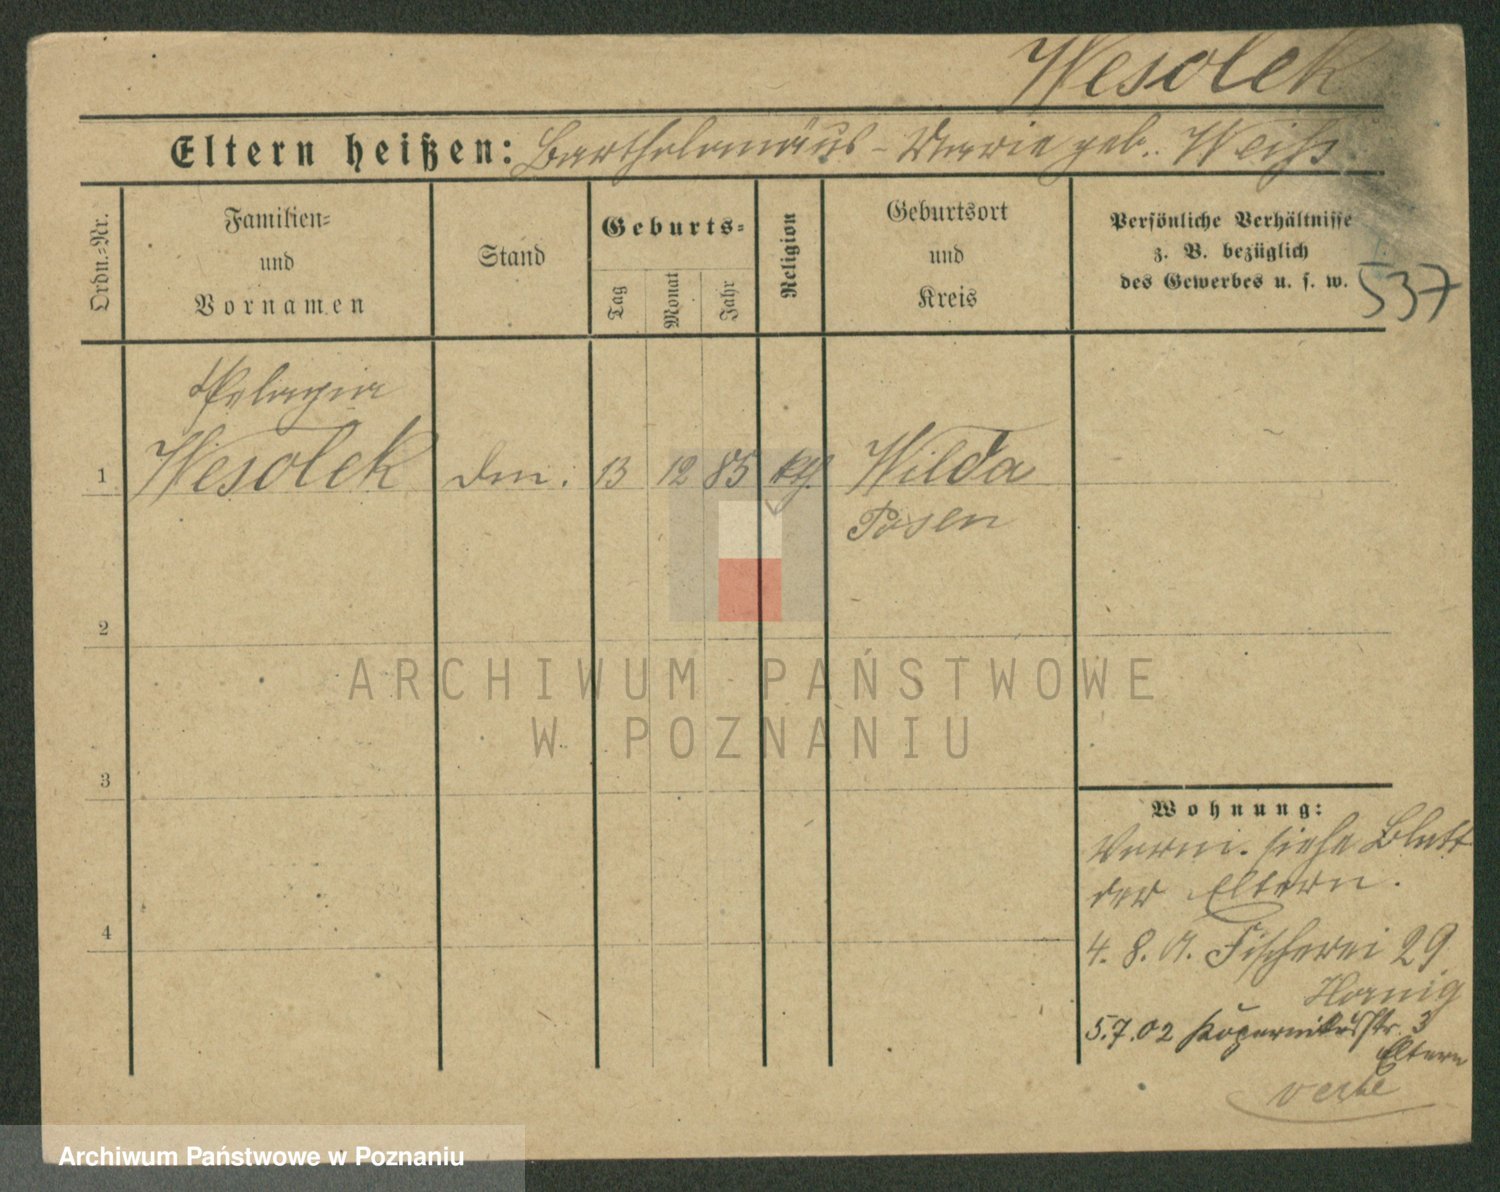 Wesolek
Eltern heißen: Bartholomäus - Marie geb. Weiß
Ordn.=Nr.
Familien=
und
Vornamen
Stand
Geburts=
Tag
Monat
Jahr
Religion
Geburtsort
und
Kreis
Persönliche Verhältnisse
z. B. bezüglich
des Gewerbes u. s. w.
537
Pelagia
1 Wesolek 13 12 85 kth. Wilda
Posen
2
3
4
Wohnung:
siehe Blatt
der Eltern.
4. 8. Fischerei 29
Hornig
5.7.02 Kopernikusstr. 3
Eltern
verte
ARCHIWUM PAŃSTWOWE
W POZNANIU
Archiwum Państwowe w Poznaniu